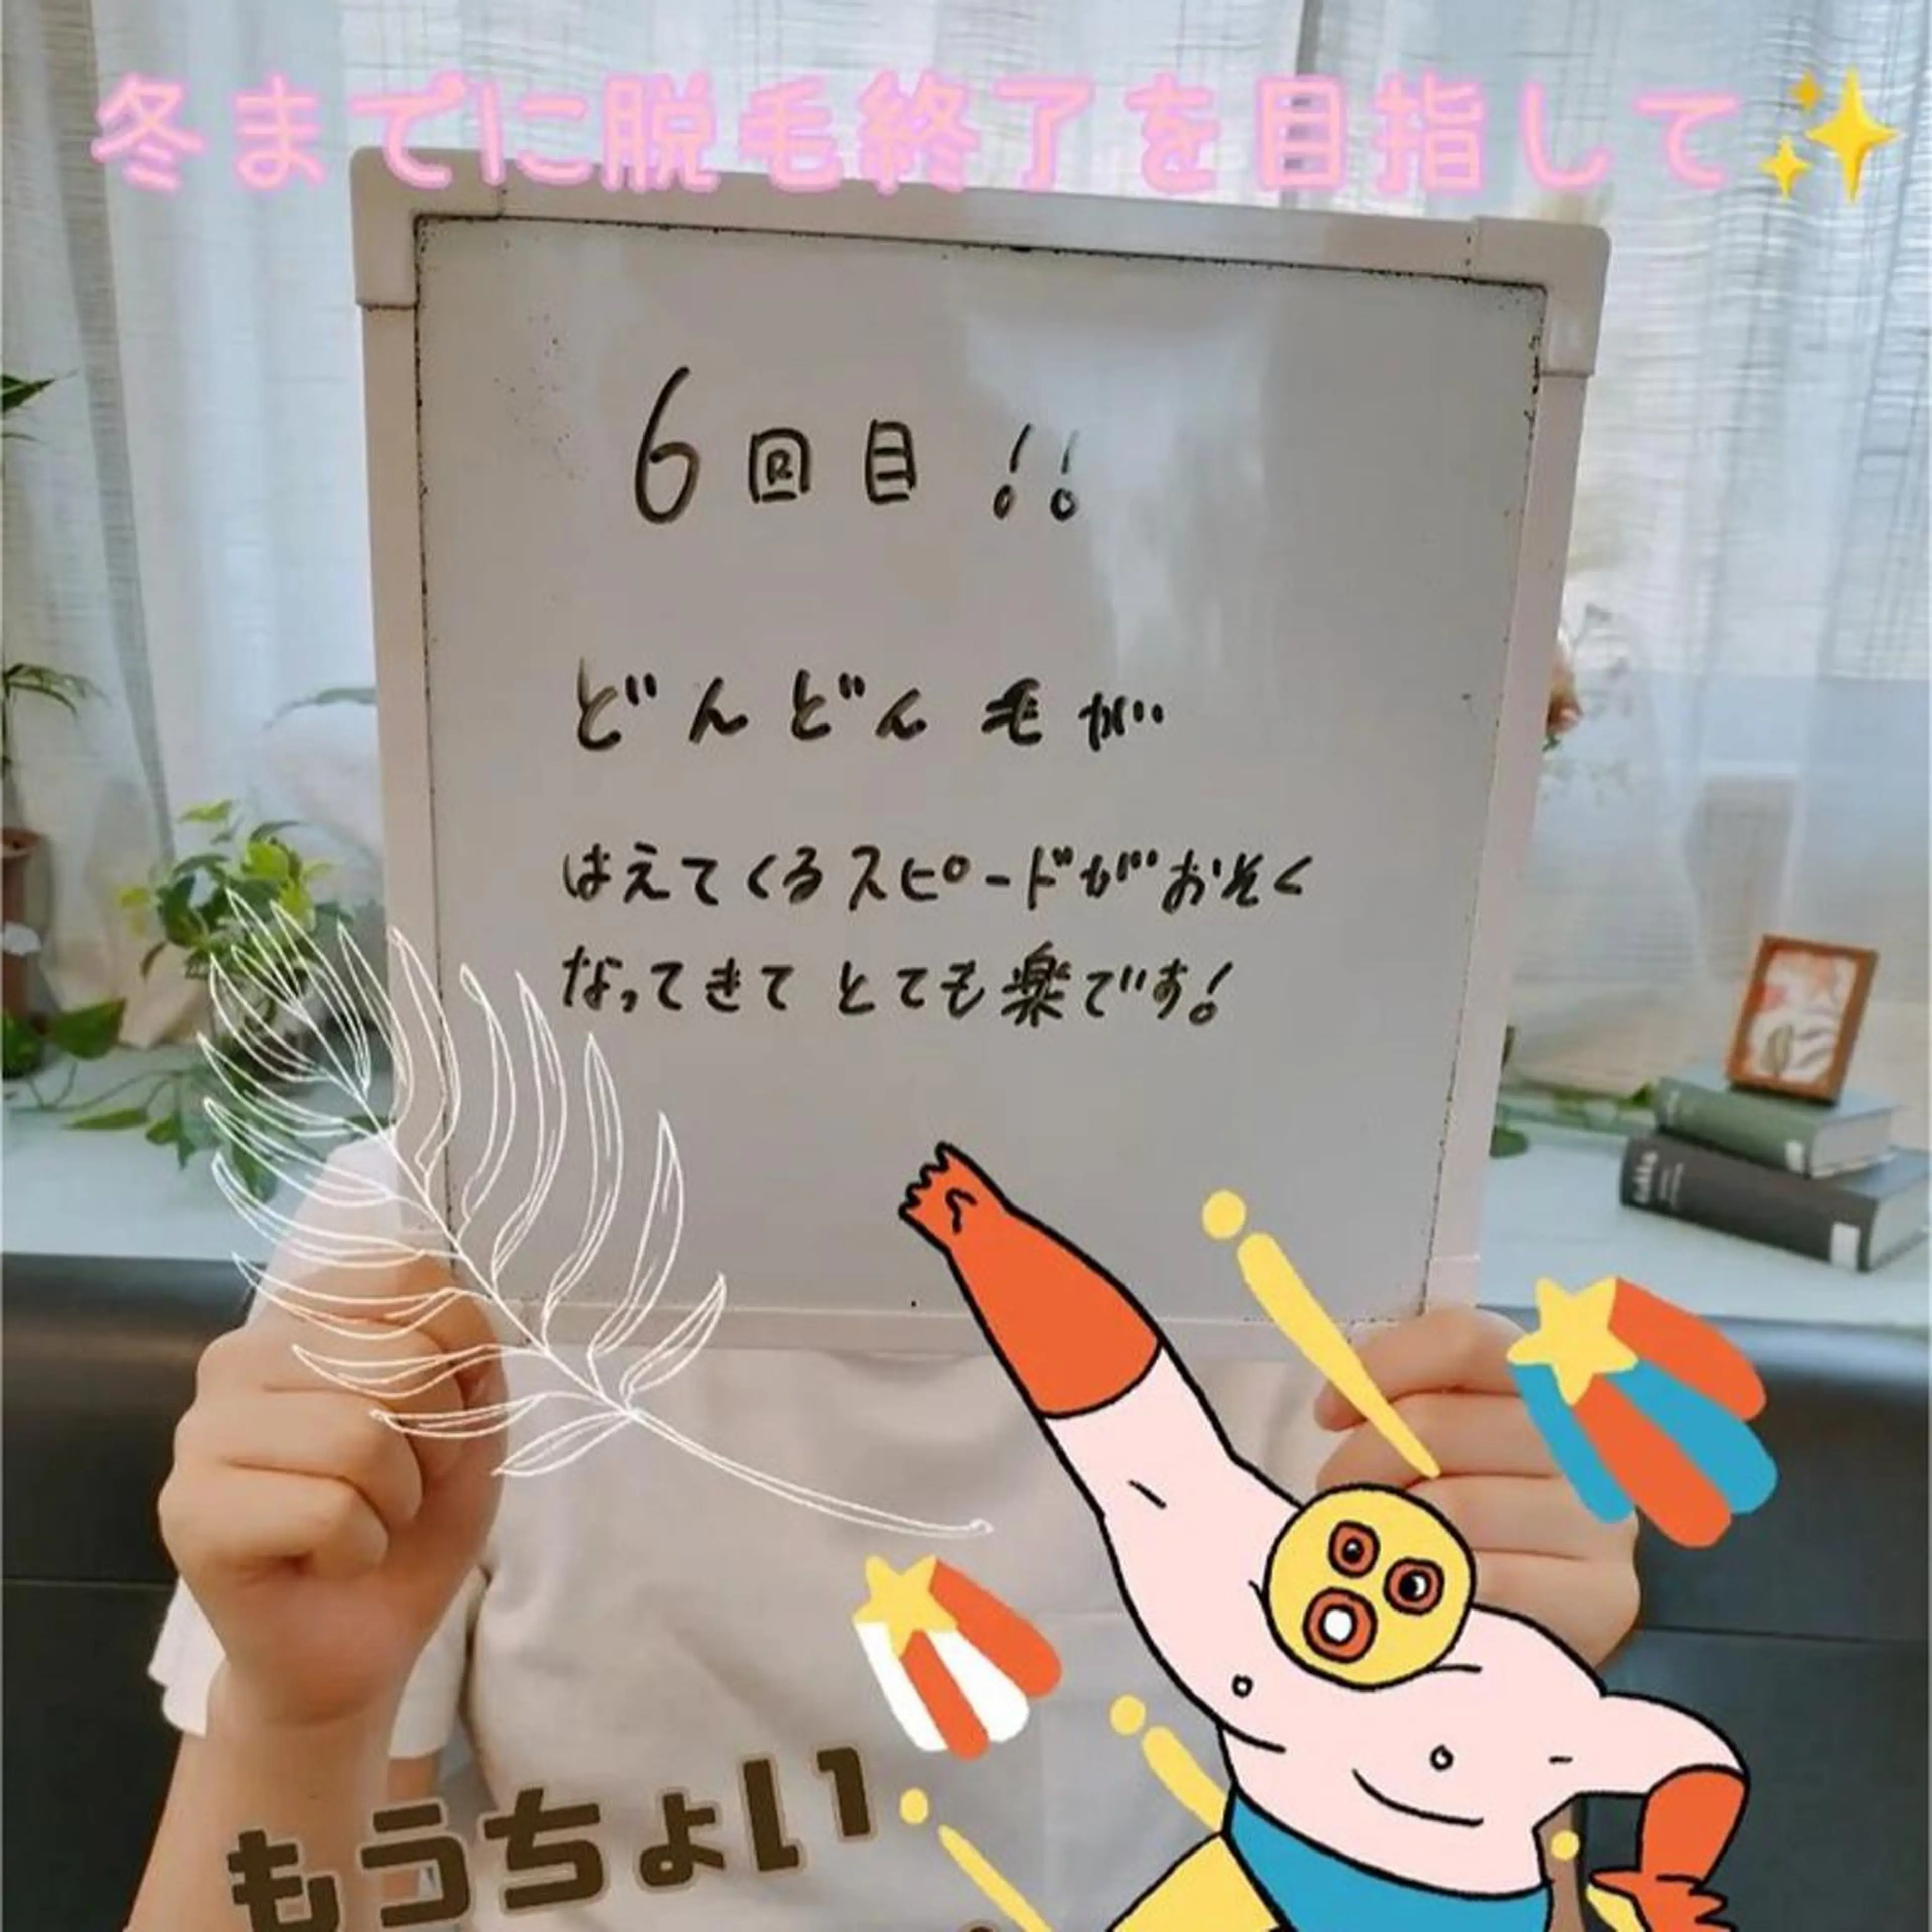 冬までに脱毛終了を目指して✨
6回目!!
どんどん毛が
はえてくるスピードがおそく
なってきて とても楽です!
もうちょい